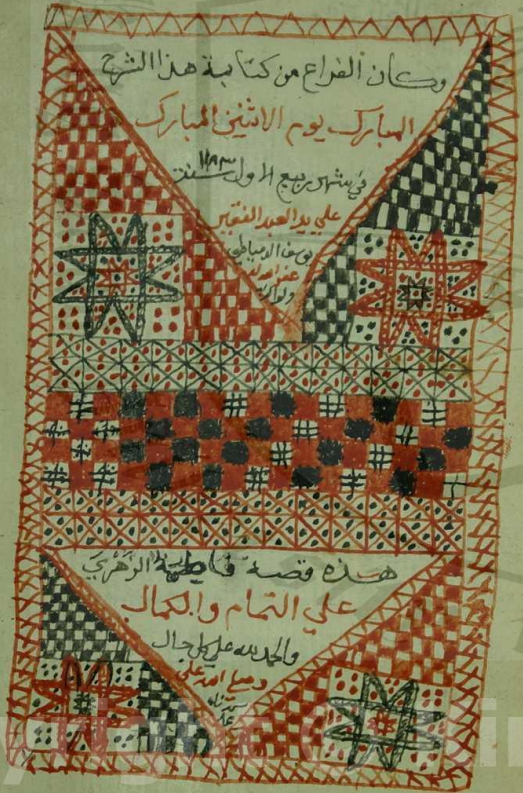 وكان الفراغ من كتابة هذا الشرح
المبارك يوم الاثنين المبارك
في شهر ربيع الاول سنة ١١٨٣
علي يد العبد الفقير
يوسف الدمياطي
غفر الله له
ولوالديه
هذه قصة فاطمة الزهري
علي التمام والكمال
والحمد لله علي كل حال
وصلي الله علي
سيدنا